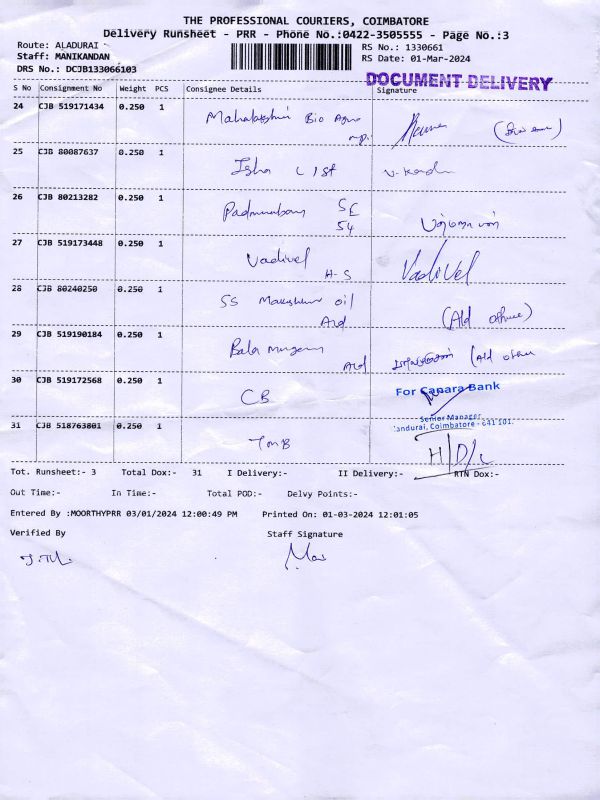 THE PROFESSIONAL COURIERS, COIMBATORE
Delivery Runsheet - PRR - Phone No.:0422-3505555 - Page No.:3
Route: ALADURAI
RS No.: 1330661
Staff: MANIKANDAN
RS Date: 01-Mar-2024
DRS No.: DCJB133066103
DOCUMENT DELIVERY
S No Consignment No Weight PCS Consignee Details Signature
24 CJB 519171434 0.250 1 Mahalakshmi Bio Agro
25 CJB 80087637 0.250 1 Isha
26 CJB 80213282 0.250 1 SE
54
27 CJB 519173448 0.250 1 Vadivel Vadivel
H-S
28 CJB 80240250 0.250 1 SS oil
Ald (Ald office)
29 CJB 519190184 0.250 1 Bala Murugan
Ald (Ald office
30 CJB 519172568 0.250 1 CB For Canara Bank
Senior Manager
Coimbatore - 641 101.
31 CJB 518763801 0.250 1 TMB
Tot. Runsheet:- 3 Total Dox:- 31 I Delivery:- II Delivery:- RTN Dox:-
Out Time:- In Time:- Total POD:- Delvy Points:-
Entered By :MOORTHYPRR 03/01/2024 12:00:49 PM Printed On: 01-03-2024 12:01:05
Verified By Staff Signature